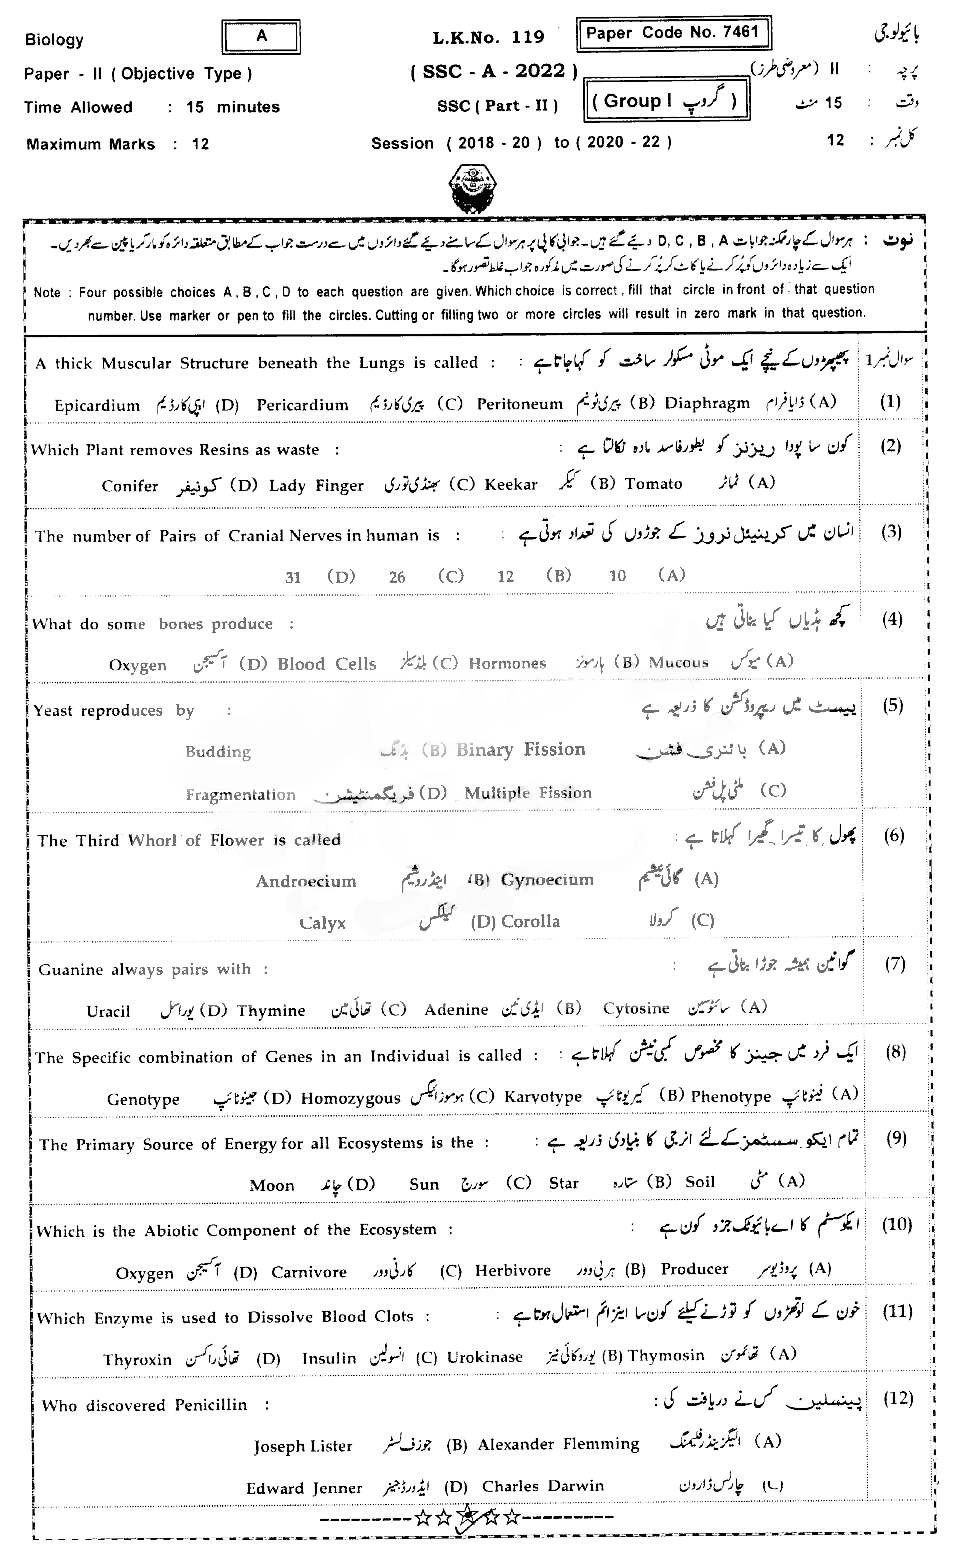 Biology A L.K.No. 119 Paper Code No. 7461 بائیولوجی
Paper - II ( Objective Type ) ( SSC - A - 2022 ) پرچہ : II (معروضی طرز)
Time Allowed : 15 minutes SSC ( Part - II ) ( Group I گروپ ) وقت : 15 منٹ
Maximum Marks : 12 Session ( 2018 - 20 ) to ( 2020 - 22 ) کل نمبر : 12
نوٹ : ہر سوال کے چار ممکنہ جوابات D, C, B, A دیئے گئے ہیں۔ جوابی کاپی پر ہر سوال کے سامنے دیئے گئے دائروں میں سے درست جواب کے مطابق متعلقہ دائرہ کو مارکر یا پین سے بھر دیں۔
ایک سے زیادہ دائروں کو پُر کرنے یا کاٹ کر پُر کرنے کی صورت میں مذکورہ جواب غلط تصور ہوگا۔
Note : Four possible choices A, B, C, D to each question are given. Which choice is correct, fill that circle in front of that question
number. Use marker or pen to fill the circles. Cutting or filling two or more circles will result in zero mark in that question.
A thick Muscular Structure beneath the Lungs is called : پھیپھڑوں کے نیچے ایک موٹی مسکولر ساخت کو کہا جاتا ہے : سوال نمبر 1
Epicardium اپی کارڈیم (D) Pericardium پیری کارڈیم (C) Peritoneum پیری ٹونیم (B) Diaphragm ڈایافرام (A) (1)
Which Plant removes Resins as waste : کون سا پودا ریزنز کو بطور فاسد مادہ نکالتا ہے : (2)
Conifer کونیفر (D) Lady Finger بھنڈی توری (C) Keekar کیکر (B) Tomato ٹماٹر (A)
The number of Pairs of Cranial Nerves in human is : انسان میں کرینیئل نروز کے جوڑوں کی تعداد ہوتی ہے : (3)
31 (D) 26 (C) 12 (B) 10 (A)
What do some bones produce : کچھ ہڈیاں کیا بناتی ہیں (4)
Oxygen آکسیجن (D) Blood Cells بلڈ سیلز (C) Hormones ہارمونز (B) Mucous میوکس (A)
Yeast reproduces by : ییسٹ میں ریپروڈکشن کا ذریعہ ہے (5)
Budding بڈنگ (B) Binary Fission بائنری فشن (A)
Fragmentation فریگمنٹیشن (D) Multiple Fission ملٹی پل فشن (C)
The Third Whorl of Flower is called پھول کا تیسرا گھیرا کہلاتا ہے : (6)
Androecium اینڈروشیم (B) Gynoecium گائی نیشیم (A)
Calyx کیلکس (D) Corolla کرولا (C)
Guanine always pairs with : گوانین ہمیشہ جوڑا بناتی ہے : (7)
Uracil یوراسل (D) Thymine تھائی مین (C) Adenine ایڈی نین (B) Cytosine سائٹوسین (A)
The Specific combination of Genes in an Individual is called : ایک فرد میں جینز کا مخصوص کمبی نیشن کہلاتا ہے : (8)
Genotype جینوٹائپ (D) Homozygous ہوموزائیگس (C) Karyotype کیریوٹائپ (B) Phenotype فینوٹائپ (A)
The Primary Source of Energy for all Ecosystems is the : تمام ایکو سسٹمز کے لئے انرجی کا بنیادی ذریعہ ہے : (9)
Moon چاند (D) Sun سورج (C) Star ستارہ (B) Soil مٹی (A)
Which is the Abiotic Component of the Ecosystem : ایکوسسٹم کا اے بائیوٹک جزو کون ہے : (10)
Oxygen آکسیجن (D) Carnivore کارنی وور (C) Herbivore ہربی وور (B) Producer پروڈیوسر (A)
Which Enzyme is used to Dissolve Blood Clots : خون کے لوتھڑوں کو توڑنے کیلئے کون سا اینزائم استعمال ہوتا ہے : (11)
Thyroxin تھائی راکسن (D) Insulin انسولین (C) Urokinase یوروکائی نیز (B) Thymosin تھائموسن (A)
Who discovered Penicillin : پینسلین کس نے دریافت کی : (12)
Joseph Lister جوزف لسٹر (B) Alexander Flemming الیگزینڈر فلیمنگ (A)
Edward Jenner ایڈورڈ جینر (D) Charles Darwin چارلس ڈارون (C)